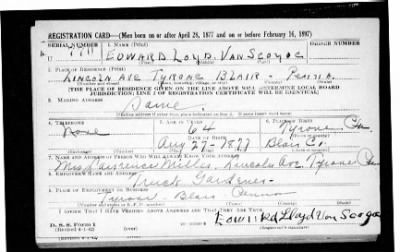 REGISTRATION CARD—(Men born on or after April 28, 1877 and on or before February 16, 1897)
SERIAL NUMBER 1. NAME (Print)
U EDWARD LOYD. VAN SCOYOC
2. PLACE OF RESIDENCE (Print)
LINCOLN AVE TYRONE BLAIR - PENNA.
[THE PLACE OF RESIDENCE GIVEN ON THE LINE ABOVE WILL DETERMINE LOCAL BOARD
JURISDICTION; LINE 2 OF REGISTRATION CERTIFICATE WILL BE IDENTICAL]
3. MAILING ADDRESS
Same
4. TELEPHONE 5. AGE IN YEARS 6. PLACE OF BIRTH
None 64 Tyrone
DATE OF BIRTH
Aug 27 - 1877 Blair Co.
7. NAME AND ADDRESS OF PERSON WHO WILL ALWAYS KNOW YOUR ADDRESS
Mrs Lawrence Miller, Lincoln Ave. Tyrone
8. EMPLOYER'S NAME AND ADDRESS
Gardner
9. PLACE OF EMPLOYMENT OR BUSINESS
Tyrone Blair
I AFFIRM THAT I HAVE VERIFIED ABOVE ANSWERS AND THAT THEY ARE TRUE.
D. S. S. Form 1
Edward Lloyd Van Scoyoc